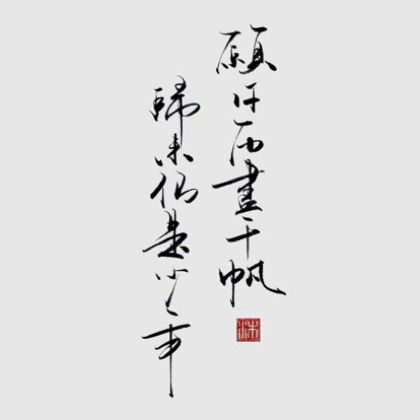 願你歷盡千帆
歸來仍是少年